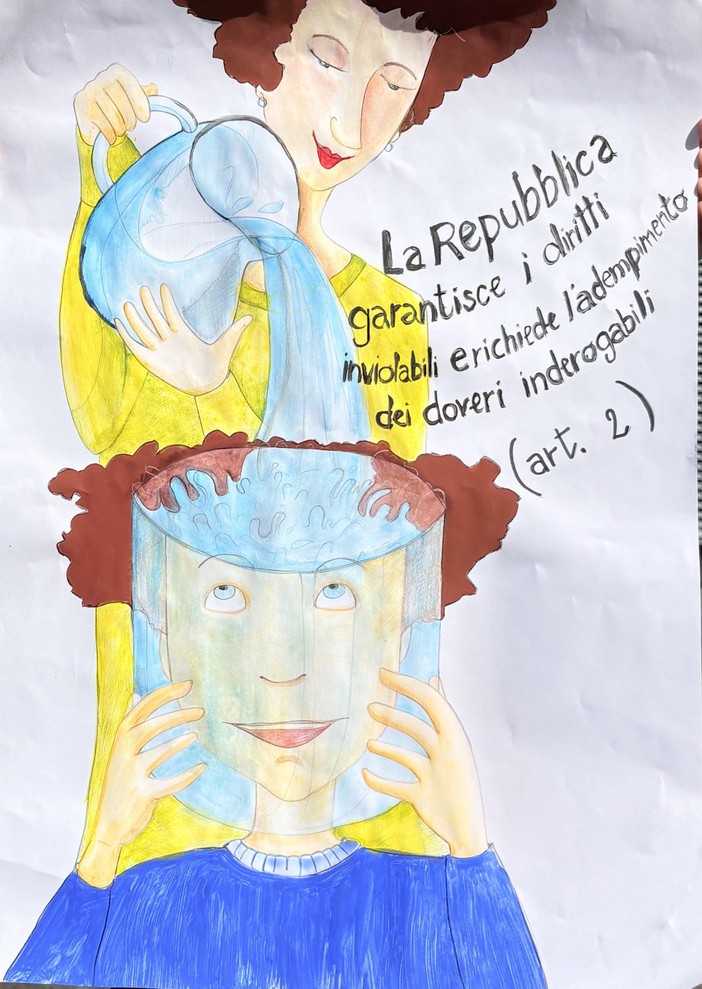 La Repubblica
garantisce i diritti
inviolabili e richiede l'adempimento
dei doveri inderogabili
(art. 2)